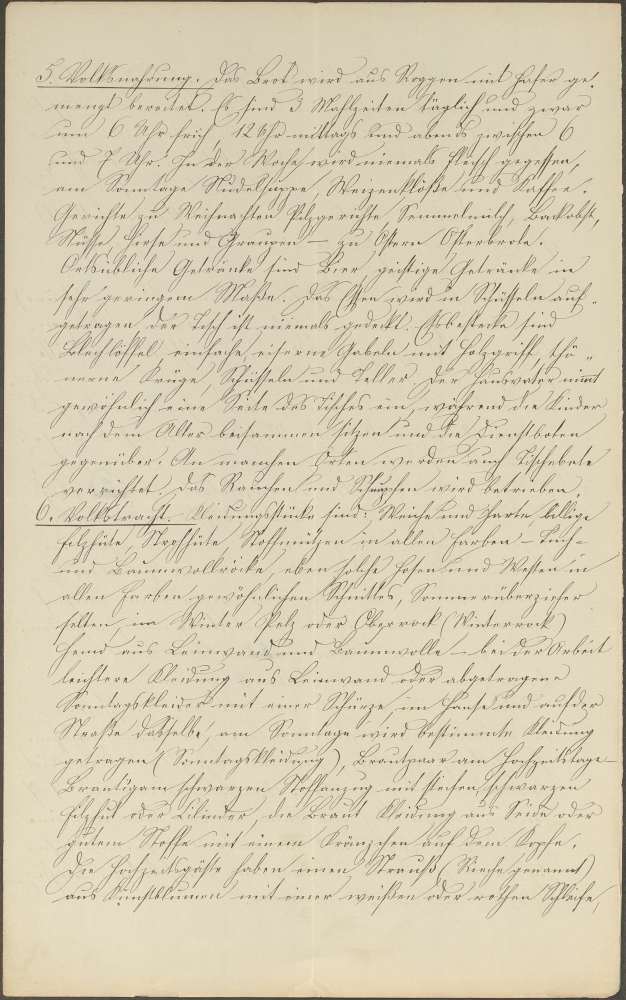 5. Volksnahrung. Das Brot wird aus Roggen mit Hafer ge¬
mengt bereitet. Es sind 3 Mahlzeiten täglich und zwar
um 6 Uhr früh, 12 Uhr mittags und abends zwischen 6
und 7 Uhr. In der Woche wird niemals Fleisch gegessen,
am Sonntage Nudelsuppe, Weizenklöße und Kaffee.
Gerichte zu Weihnachten Pilzgerichte, Semmelmilch, Backobst,
Nüsse, Hirse und Graupen – zu Ostern Osterbrote.
Ortsübliche Getränke sind Bier, geistige Getränke in
sehr geringem Maße. Das Essen wird in Schüsseln auf¬
getragen der Tisch ist niemals gedeckt. Essbestecke sind
Blechlöffel, einfache, eiserne Gabeln mit Holzgriff, thö¬
nerne Krüge, Schüsseln und Teller. Der Hausvater nimmt
gewöhnlich eine Seite des Tisches ein, während die Kinder
nach dem Alter beisammen sitzen und die Dienstboten
gegenüber. An manchen Orten werden auch Tischgebete
verrichtet. Das Rauchen und Schnupfen wird betrieben.
6. Volkstracht. Kleidungsstücke sind: Weiche und harte, billige
Filzhüte, Strohhüte, Stoffmützen in allen Farben – Tuch-
und Baumwollröcke, eben solche Hosen und Westen in
allen Farben gewöhnlichen Schnittes, Sommerüberzieher
selten, im Winter Pelz oder Oberrock (Winterrock)
Hemd aus Leinwand und Baumwolle – bei der Arbeit
leichtere Kleidung aus Leinwand oder abgetragene
Sonntagskleider mit einer Schürze, im Hause und auf der
Straße dasselbe, am Sonntage wird bestimmte Kleidung
getragen (Sonntagskleidung), Brautpaar am Hochzeitstage –
Bräutigam schwarzen Stoffanzug mit steifen schwarzen
Filzhut oder Cilinder, die Braut Kleidung aus Seide oder
gutem Stoffe mit einem Kränzchen auf dem Kopfe.
Die Hochzeitsgäste haben einen Strauß (Riech genannt)
aus Kunstblumen mit einer weißen oder rothen Schleife,